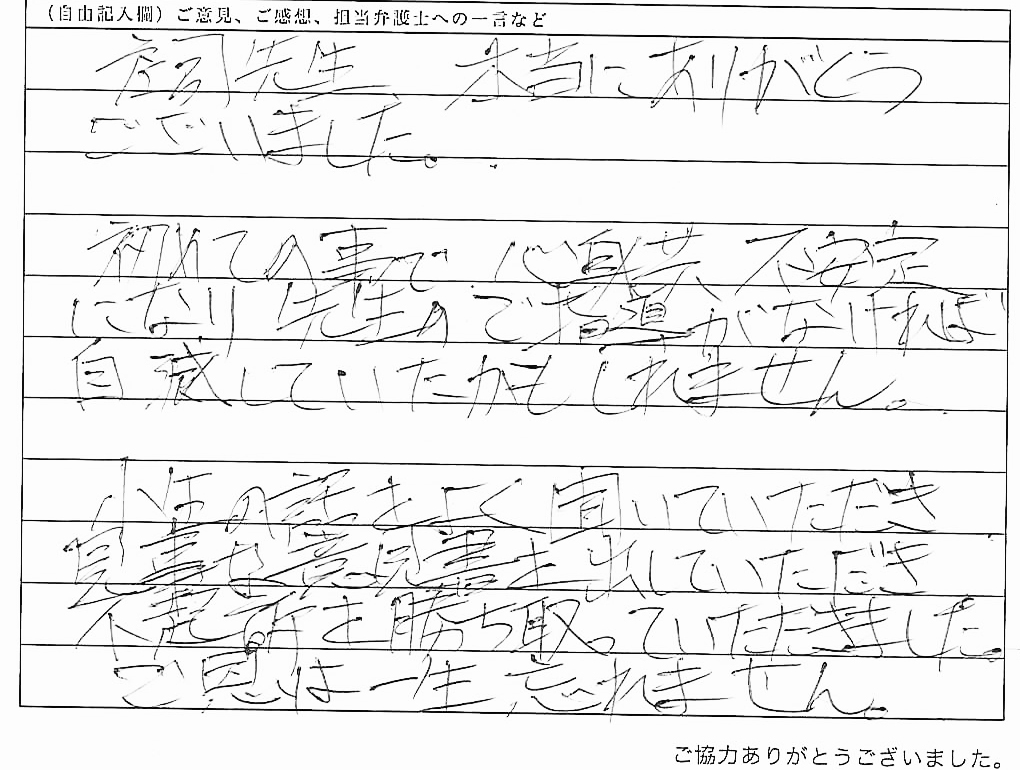 (自由記入欄)ご意見、ご感想、担当弁護士への一言など
庄司先生、本当にありがとう
ございました。
初めての事で心身共不安定
になり先生のご指導がなければ
自滅していたかもしれません。
小生の話をよく聞いていただき
見事な意見書を出していただき
不起訴を勝ち取っていただきました。
ご恩は一生忘れません。
ご協力ありがとうございました。